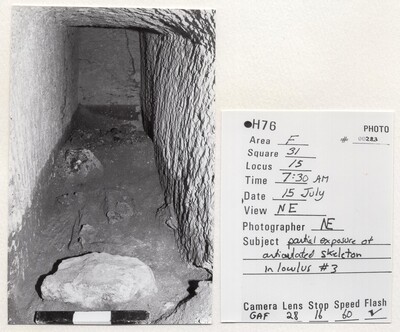 ●H76 PHOTO
Area F # 00283
Square 31
Locus 15
Time 7:30 AM
Date 15 July
View NE
Photographer NE
Subject partial exposure of
articulated skeleton
in loculus #3
Camera Lens Stop Speed Flash
GAF 28 16 60 ✓